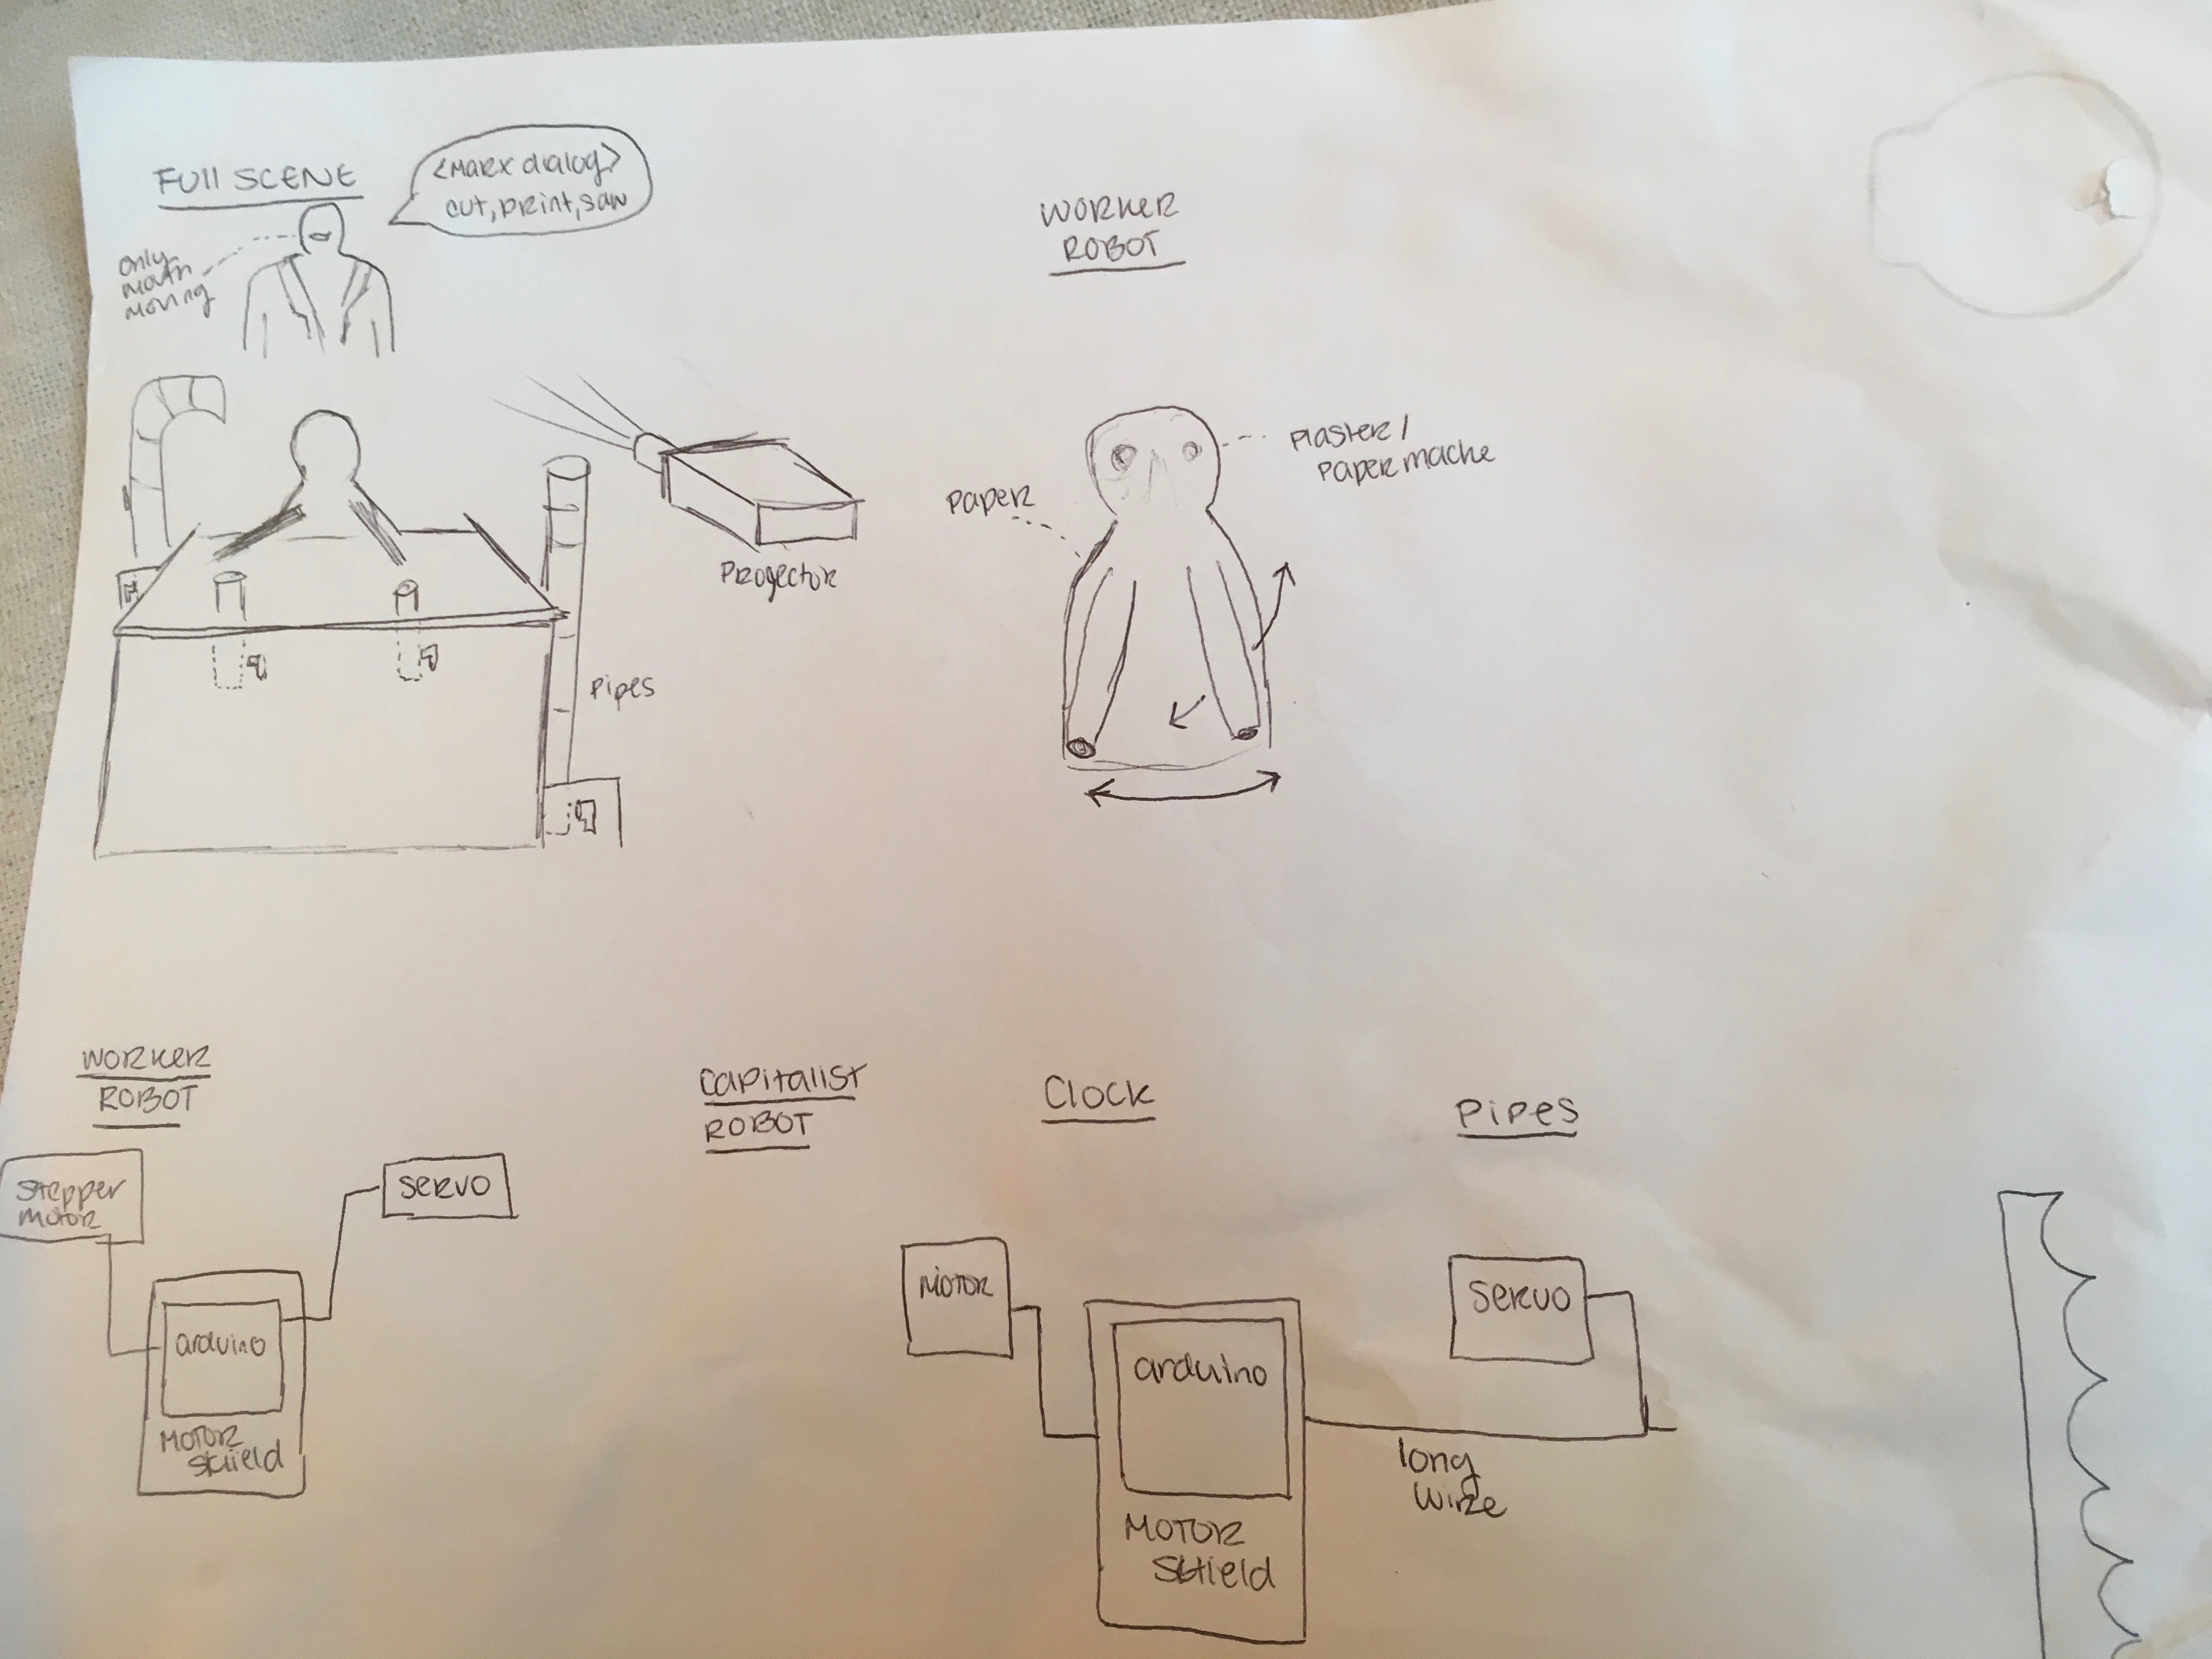 FUll SCENE
<MARX dialog>
cut, print, saw
only
mouth
moving
Progector
Pipes
WORKER
ROBOT
Plaster/
Paper mache
Paper
WORKER
ROBOT
Stepper
motor
servo
arduino
MOTOR
SHield
CAPitalist
ROBOT
Clock
MOTOR
arduino
MOTOR
SHield
Pipes
SERVO
long
wire